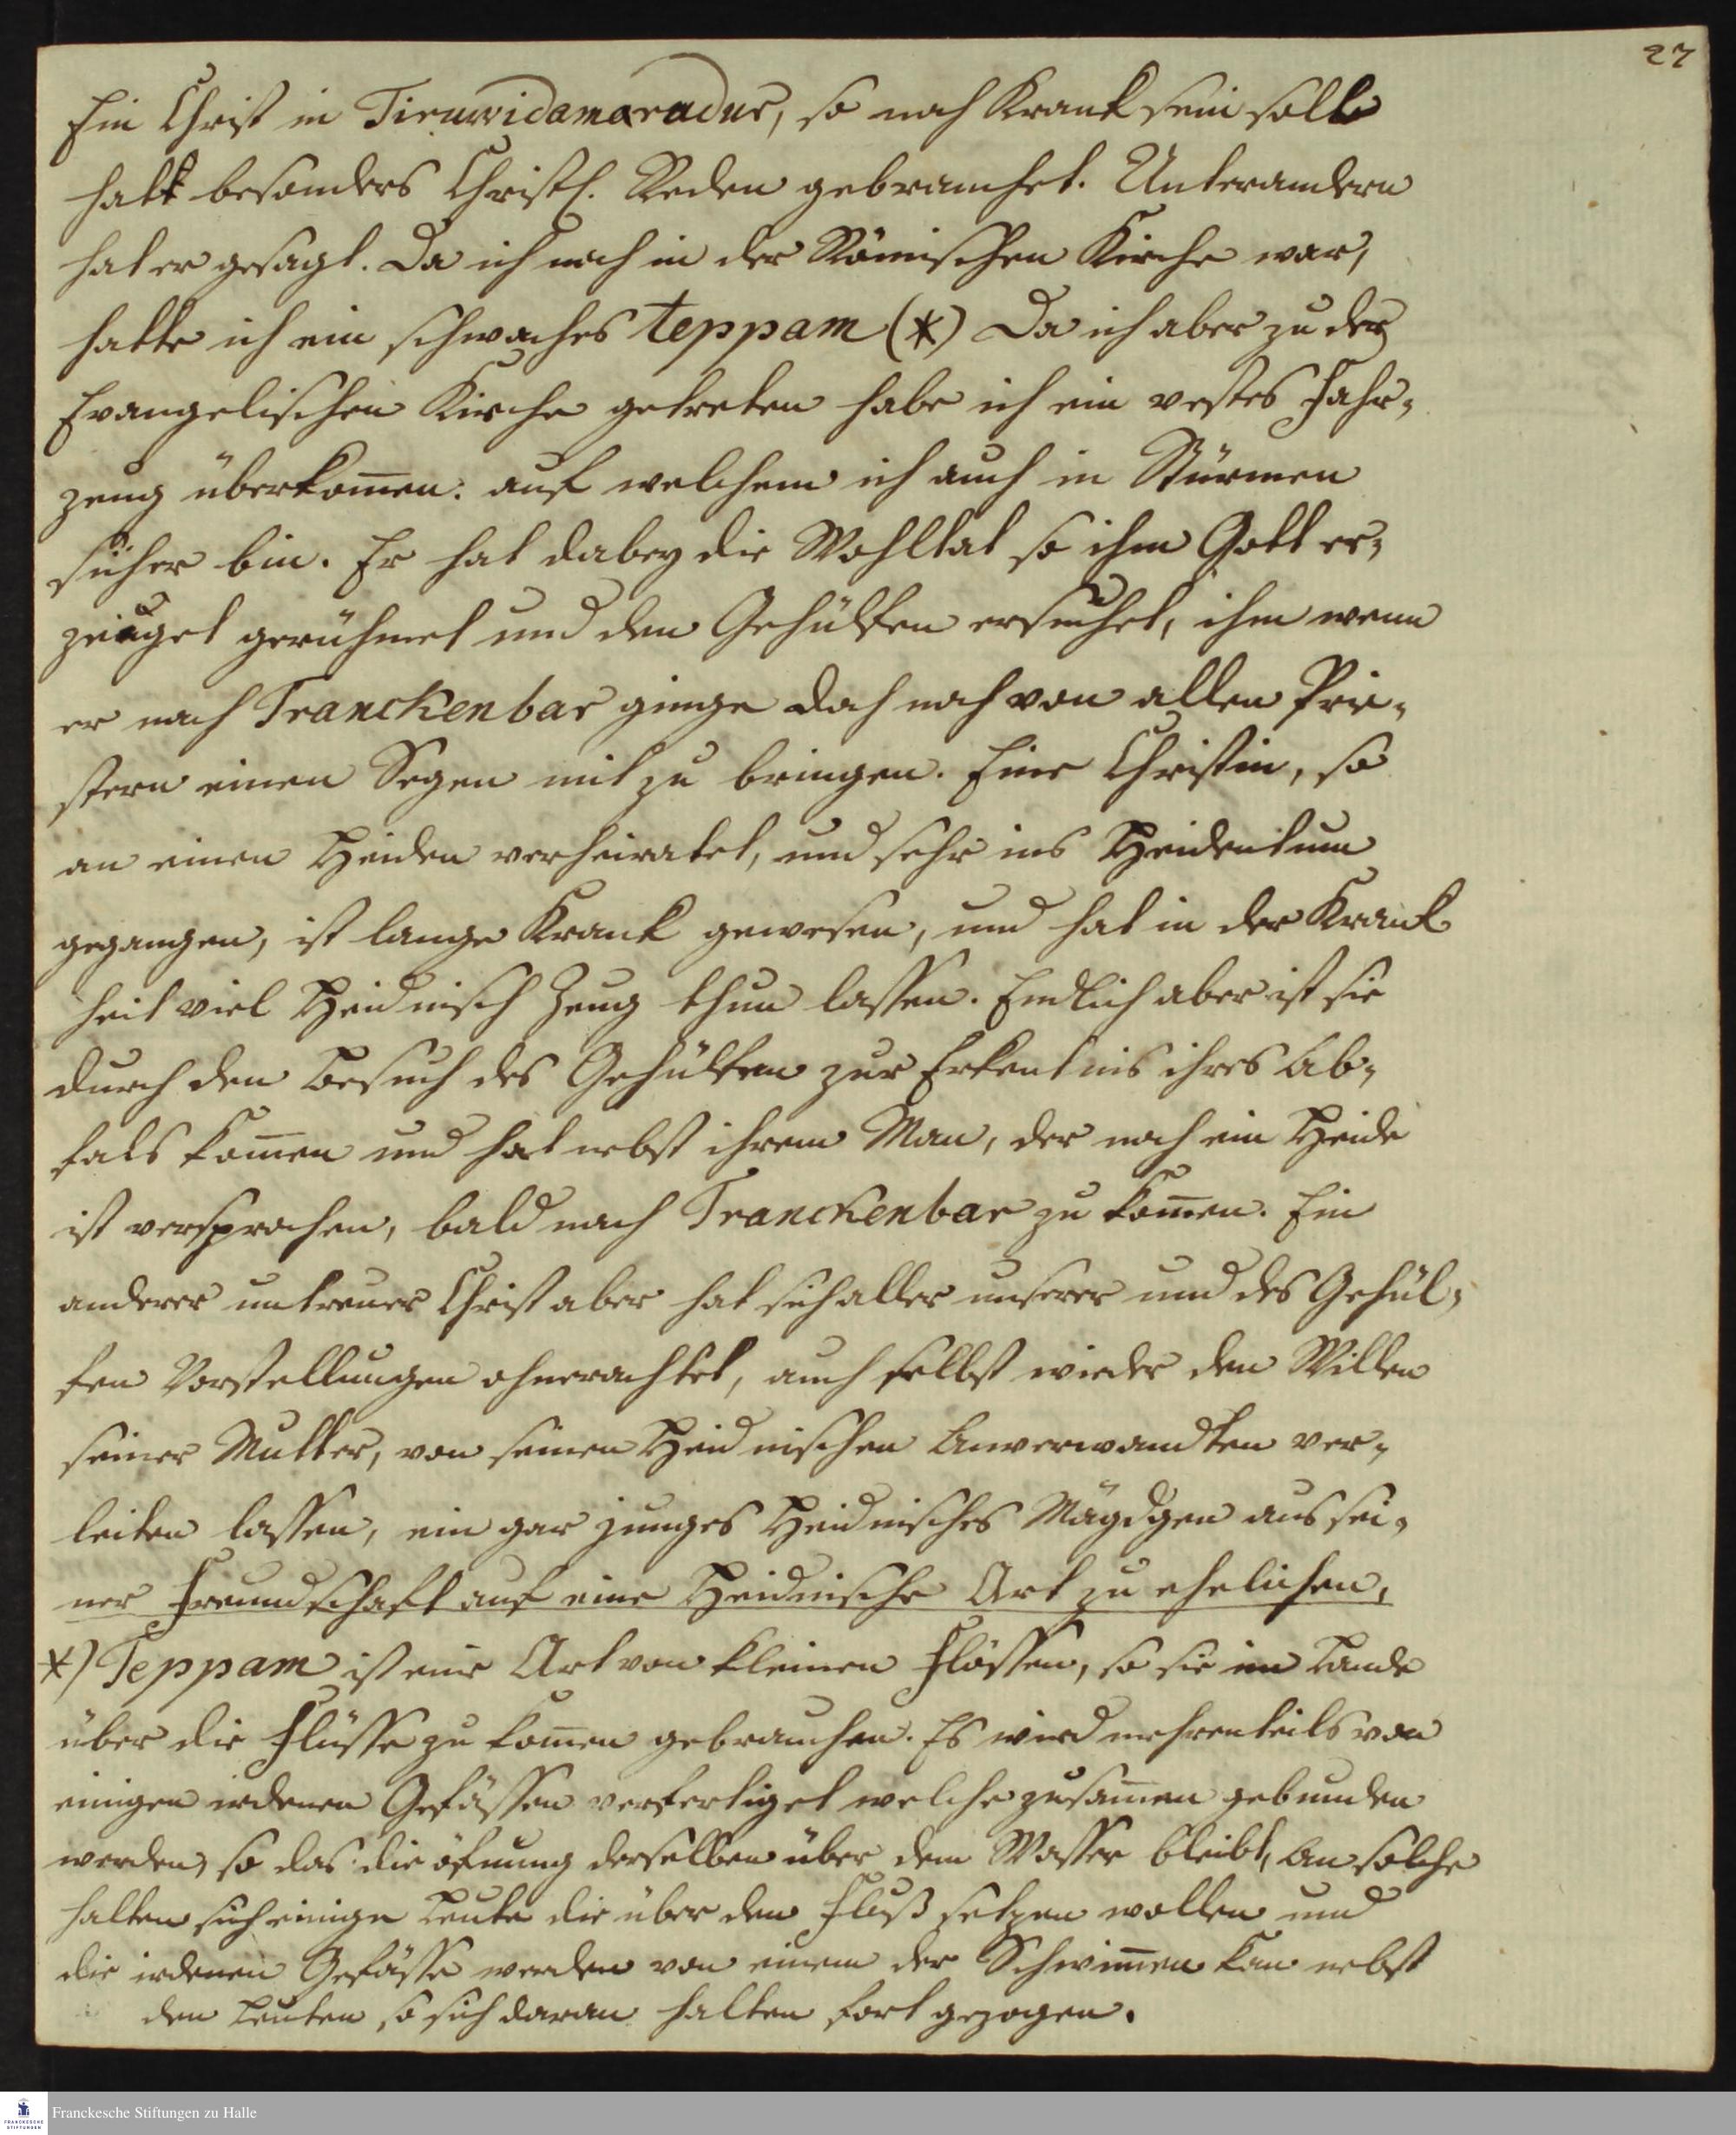 27
Ein Christ in Tiruwidamaradur, so noch Kranck sein soll
hatt besonders Christl. Reden gebrauchet. Unterandern
hat er gesagt. Da ich noch in der Römischen Kirche war,
hatte ich ein schwaches teppam (*) Da ich aber zu der
Evangelischen Kirche getreten habe ich ein vestes Fahr-
zeug überkom̄en: auf welchem ich auch in Stürmen
sicher bin. Er hat dabey die Wohltat so ihm Gott er-
zeuget gerühmet und den Gehülfen ersuchet, ihm wenn
er nach Tranckenbar ginge doch noch von allen Prie-
stern einen Segen mit zu bringen. Eine Christin, so
an einen Heiden verheiratet, und sehr ins Heidentum
gegangen, ist lange Kranck gewesen, und hat in der Kranck
heit viel Heidnisch Zeug thun lassen. Endlich aber ist sie
durch den Besuch des Gehülfen zur Erkentnis ihres Ab-
fals kom̄en und hat nebst ihrem Man, der noch ein Heide
ist versprochen, bald nach Tranckenbar zu kom̄en. Ein
anderer untreuer Christ aber hat sich aller unserer und des Gehül-
fen Vorstellungen ohnerachtet, auch selbst wieder den Willen
seiner Mutter, von seinen Heidnischen Anverwandten ver-
leiten lassen, ein gar junges Heidnisches Mägdgen aus sei-
ner Freundschaft auf eine Heidnische Art zu ehelichen,
*) Teppam ist eine Art von kleinen Flössen, so sie im Lande
über die Flüsse zu kom̄en gebrauchen. Es wird mehrenteils von
einigen irdenen Gefässen verfertiget welche zusam̄en gebunden
werden, so das die öfnung derselben über dem Wasser bleibt, An solche
halten sich einige Leute die über den Fluß setzen wollen und
die irdenen Gefässe werden von einem der Schwim̄en kan nebst
den Leuten so sich daran halten fort gezogen.
Franckesche Stiftungen zu Halle
FRANCKESCHE
STIFTUNGEN